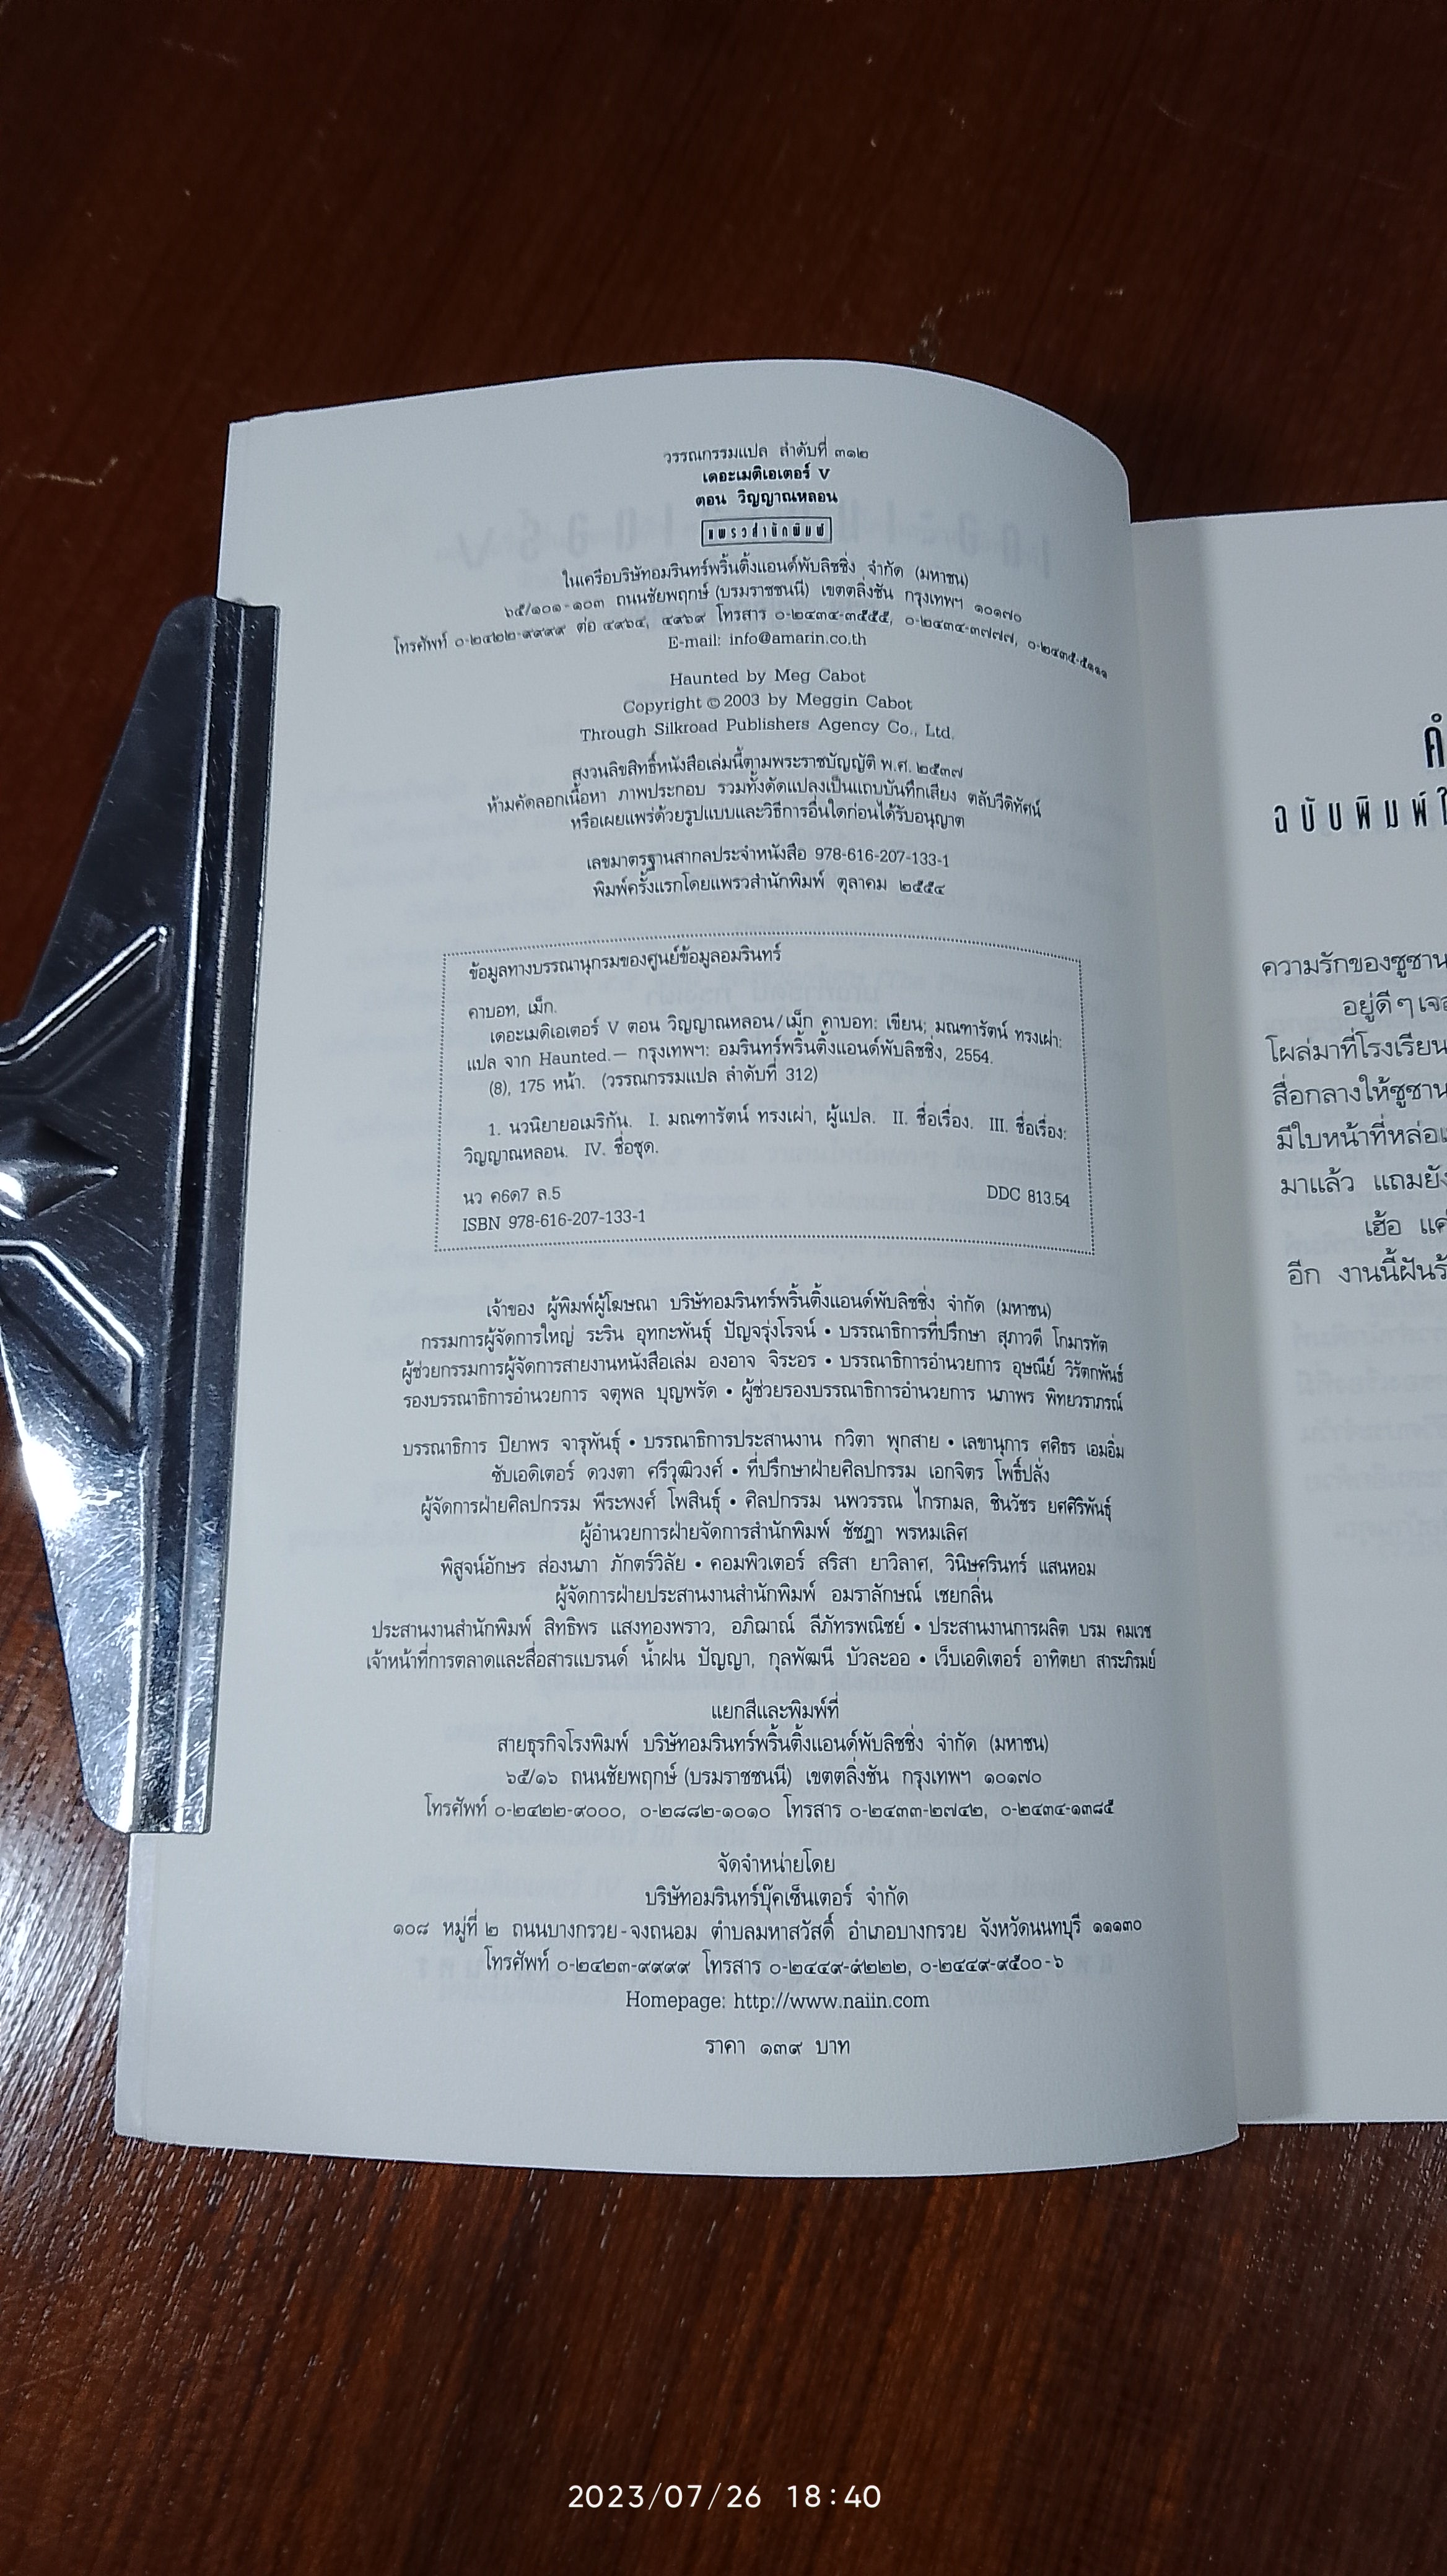 วรรณกรรมแปล ลำดับที่ ๓๑๒
เดอะเมดิเอเตอร์ V
ตอน วิญญาณหลอน
แพรวสำนักพิมพ์
ในเครือบริษัทอมรินทร์พริ้นติ้งแอนด์พับลิชชิ่ง จำกัด (มหาชน)
๖๕/๑๐๑-๑๐๓ ถนนชัยพฤกษ์ (บรมราชชนนี) เขตตลิ่งชัน กรุงเทพฯ ๑๐๑๗๐
โทรศัพท์ ๐-๒๔๒๒-๙๙๙๙ ต่อ ๔๙๖๔, ๔๙๖๙ โทรสาร ๐-๒๔๓๔-๓๕๕๕, ๐-๒๔๓๔-๓๗๗๗, ๐-๒๔๓๕-๕๑๑๑
E-mail: info@amarin.co.th
Haunted by Meg Cabot
Copyright © 2003 by Meggin Cabot
Through Silkroad Publishers Agency Co., Ltd.
สงวนลิขสิทธิ์หนังสือเล่มนี้ตามพระราชบัญญัติ พ.ศ. ๒๕๓๗
ห้ามคัดลอกเนื้อหา ภาพประกอบ รวมทั้งดัดแปลงเป็นแถบบันทึกเสียง ตลับวีดิทัศน์
หรือเผยแพร่ด้วยรูปแบบและวิธีการอื่นใดก่อนได้รับอนุญาต
เลขมาตรฐานสากลประจำหนังสือ 978-616-207-133-1
พิมพ์ครั้งแรกโดยแพรวสำนักพิมพ์ ตุลาคม ๒๕๕๔
ข้อมูลทางบรรณานุกรมของศูนย์ข้อมูลอมรินทร์
คาบอท, เม็ก.
เดอะเมดิเอเตอร์ V ตอน วิญญาณหลอน/เม็ก คาบอท: เขียน; มณฑารัตน์ ทรงเผ่า:
แปล จาก Haunted.— กรุงเทพฯ: อมรินทร์พริ้นติ้งแอนด์พับลิชชิ่ง, 2554.
(8), 175 หน้า. (วรรณกรรมแปล ลำดับที่ 312)
1. นวนิยายอเมริกัน. I. มณฑารัตน์ ทรงเผ่า, ผู้แปล. II. ชื่อเรื่อง. III. ชื่อเรื่อง:
วิญญาณหลอน. IV. ชื่อชุด.
นว ค6ด7 ล.5 DDC 813.54
ISBN 978-616-207-133-1
เจ้าของ ผู้พิมพ์ผู้โฆษณา บริษัทอมรินทร์พริ้นติ้งแอนด์พับลิชชิ่ง จำกัด (มหาชน)
กรรมการผู้จัดการใหญ่ ระริน อุทกะพันธุ์ ปัญจรุ่งโรจน์ • บรรณาธิการที่ปรึกษา สุภาวดี โกมารทัต
ผู้ช่วยกรรมการผู้จัดการสายงานหนังสือเล่ม องอาจ จิระอร • บรรณาธิการอำนวยการ อุษณีย์ วิรัตกพันธ์
รองบรรณาธิการอำนวยการ จตุพล บุญพรัด • ผู้ช่วยรองบรรณาธิการอำนวยการ นภาพร พิทยวราภรณ์
บรรณาธิการ ปิยาพร จารุพันธุ์ • บรรณาธิการประสานงาน กวิตา พุกสาย • เลขานุการ ศศิธร เอมอิ่ม
ซับเอดิเตอร์ ดวงตา ศรีวุฒิวงศ์ • ที่ปรึกษาฝ่ายศิลปกรรม เอกจิตร โพธิ์ปลั่ง
ผู้จัดการฝ่ายศิลปกรรม พีระพงศ์ โพสินธุ์ • ศิลปกรรม นพวรรณ ไกรกมล, ชินวัชร ยศศิริพันธุ์
ผู้อำนวยการฝ่ายจัดการสำนักพิมพ์ ชัชฎา พรหมเลิศ
พิสูจน์อักษร ส่องนภา ภักตร์วิลัย • คอมพิวเตอร์ สริสา ยาวิลาศ, วินิษศรินทร์ แสนหอม
ผู้จัดการฝ่ายประสานงานสำนักพิมพ์ อมราลักษณ์ เชยกลิ่น
ประสานงานสำนักพิมพ์ สิทธิพร แสงทองพราว, อภิฌาณ์ ลีภัทรพณิชย์ • ประสานงานการผลิต บรม คมเวช
เจ้าหน้าที่การตลาดและสื่อสารแบรนด์ น้ำฝน ปัญญา, กุลพัฒนี บัวละออ • เว็บเอดิเตอร์ อาทิตยา สาระภิรมย์
แยกสีและพิมพ์ที่
สายธุรกิจโรงพิมพ์ บริษัทอมรินทร์พริ้นติ้งแอนด์พับลิชชิ่ง จำกัด (มหาชน)
๖๕/๑๖ ถนนชัยพฤกษ์ (บรมราชชนนี) เขตตลิ่งชัน กรุงเทพฯ ๑๐๑๗๐
โทรศัพท์ ๐-๒๔๒๒-๙๐๐๐, ๐-๒๘๘๒-๑๐๑๐ โทรสาร ๐-๒๔๓๓-๒๗๔๒, ๐-๒๔๓๔-๑๓๘๕
จัดจำหน่ายโดย
บริษัทอมรินทร์บุ๊คเซ็นเตอร์ จำกัด
๑๐๘ หมู่ที่ ๒ ถนนบางกรวย-จงถนอม ตำบลมหาสวัสดิ์ อำเภอบางกรวย จังหวัดนนทบุรี ๑๑๑๓๐
โทรศัพท์ ๐-๒๔๒๓-๙๙๙๙ โทรสาร ๐-๒๔๔๙-๙๒๒๒, ๐-๒๔๔๙-๙๕๐๐-๖
Homepage: http://www.naiin.com
ราคา ๑๓๙ บาท
ฉบับพิมพ์
ความรักของซูซาน
อยู่ดีๆ เจอ
โผล่มาที่โรงเรียน
สื่อกลางให้ซูซาน
มีใบหน้าที่หล่อ
มาแล้ว แถมยัง
เฮ้อ แค่
อีก งานนี้ฝันร้
2023/07/26 18:40